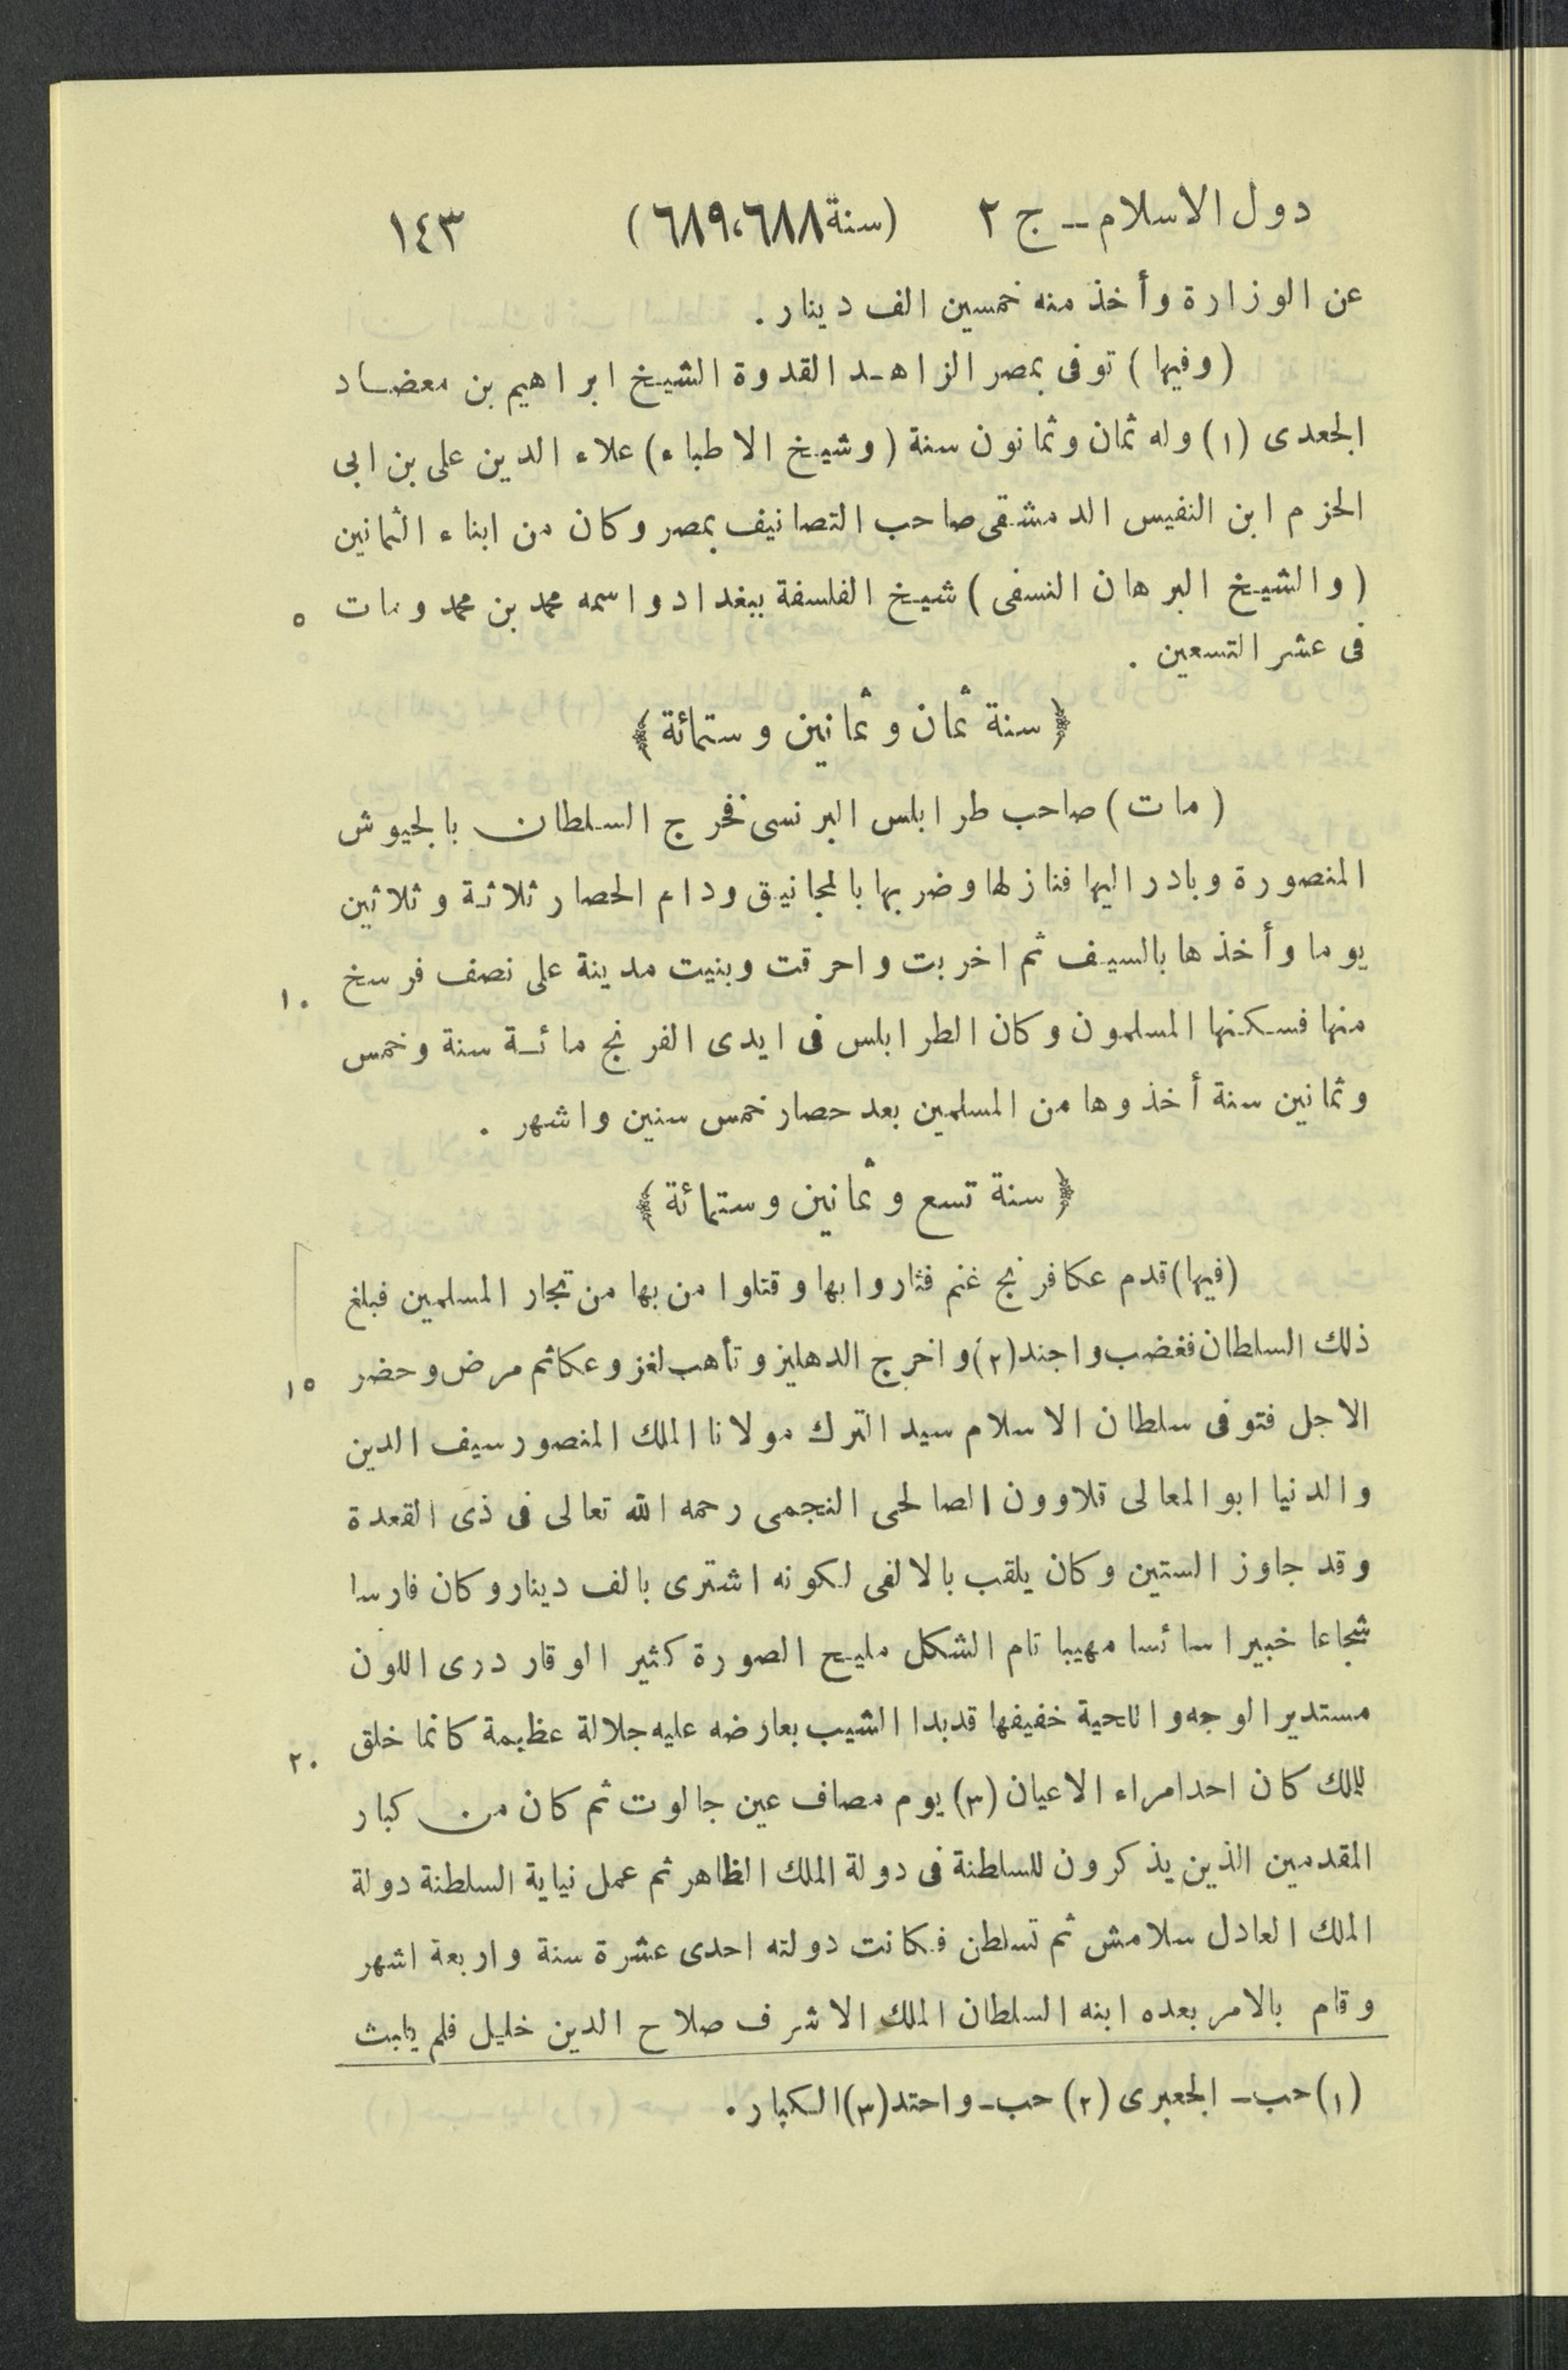 دول الاسلام ـ ج ٢ (سنة ٦٨٨،٦٨٩) ١٤٣
عن الوزارة وأخذ منه خمسين الف دينار .
(وفيها) توفى بمصر الزاهد القدوة الشيخ ابراهيم بن معضاد
الجعدى (١) وله ثمان وثمانون سنة (وشيخ الاطباء) علاء الدين على بن ابى
الحزم ابن النفيس الدمشقى صاحب التصانيف بمصر وكان من ابناء الثمانين
(والشيخ البرهان النسفى) شيخ الفلسفة ببغداد واسمه محمد بن محمد ومات ٥
فى عشر التسعين .
﴿ سنة ثمان وثمانين وستمائة ﴾
(مات) صاحب طرابلس البرنسى فخرج السلطان بالجيوش
المنصورة وبادر اليها فنازلها وضربها بالمجانيق ودام الحصار ثلاثة وثلاثين
يوما وأخذها بالسيف ثم اخربت واحرقت وبنيت مدينة على نصف فرسخ ١٠
منها فسكنها المسلمون وكان الطرابلس فى ايدى الفرنج مائة سنة وخمس
وثمانين سنة أخذوها من المسلمين بعد حصار خمس سنين واشهر .
﴿ سنة تسع وثمانين وستمائة ﴾
(فيها) قدم عكا فرنج غنم فثاروا بها وقتلوا من بها من تجار المسلمين فبلغ
ذلك السلطان فغضب واجند (٢) واخرج الدهليز وتأهب لغزو عكا ثم مرض وحضر ١٥
الاجل فتوفى سلطان الاسلام سيد الترك مولانا الملك المنصور سيف الدين
والدنيا ابو المعالى قلاوون الصالحى النجمى رحمه الله تعالى فى ذى القعدة
وقد جاوز الستين وكان يلقب بالالفى لكونه اشترى بالف دينار وكان فارسا
شجاعا خبيرا سائسا مهيبا تام الشكل مليح الصورة كثير الوقار درى اللون
مستدير الوجه واللحية خفيفها قد بدا الشيب بعارضه عليه جلالة عظيمة كانما خلق ٢٠
للملك كان احد امراء الاعيان (٣) يوم مصاف عين جالوت ثم كان من كبار
المقدمين الذين يذكرون للسلطنة فى دولة الملك الظاهر ثم عمل نيابة السلطنة دولة
الملك العادل سلامش ثم تسلطن فكانت دولته احدى عشرة سنة واربعة اشهر
وقام بالامر بعده ابنه السلطان الملك الاشرف صلاح الدين خليل فلم يلبث
(١) حب ـ الجعبرى (٢) حب ـ واحتد (٣) الكبار .